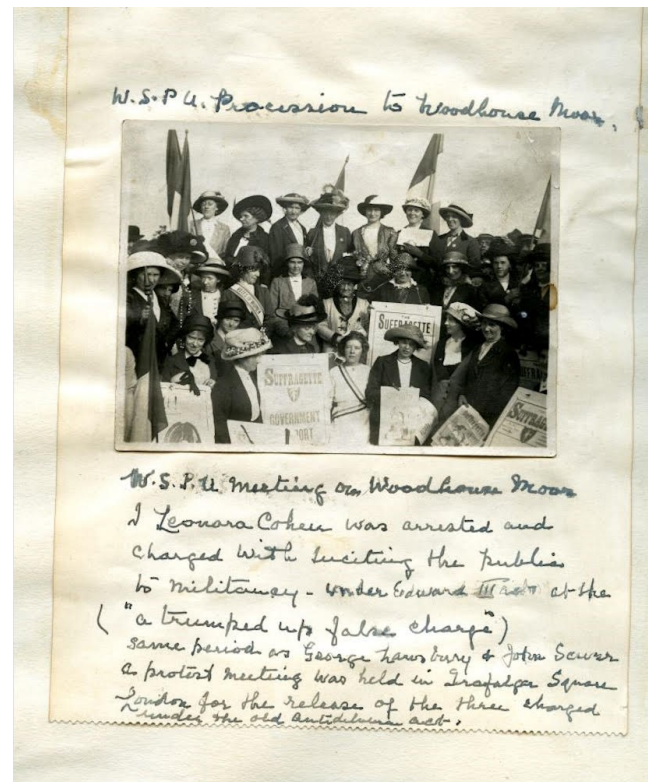 W.S.P.U. Procession to Woodhouse Moor.
THE
SUFFRAGETTE
SUFFRAGETTE
GOVERNMENT
SUFFRAGETTE
W.S.P.U. Meeting on Woodhouse Moor
I Leonora Cohen was arrested and
charged with inciting the public
to militancy - under Edward III act at the
("a trumped up false charge")
same period as George Lansbury & John Scurr
a protest meeting was held in Trafalgar Square
London for the release of the three charged
under the old act.